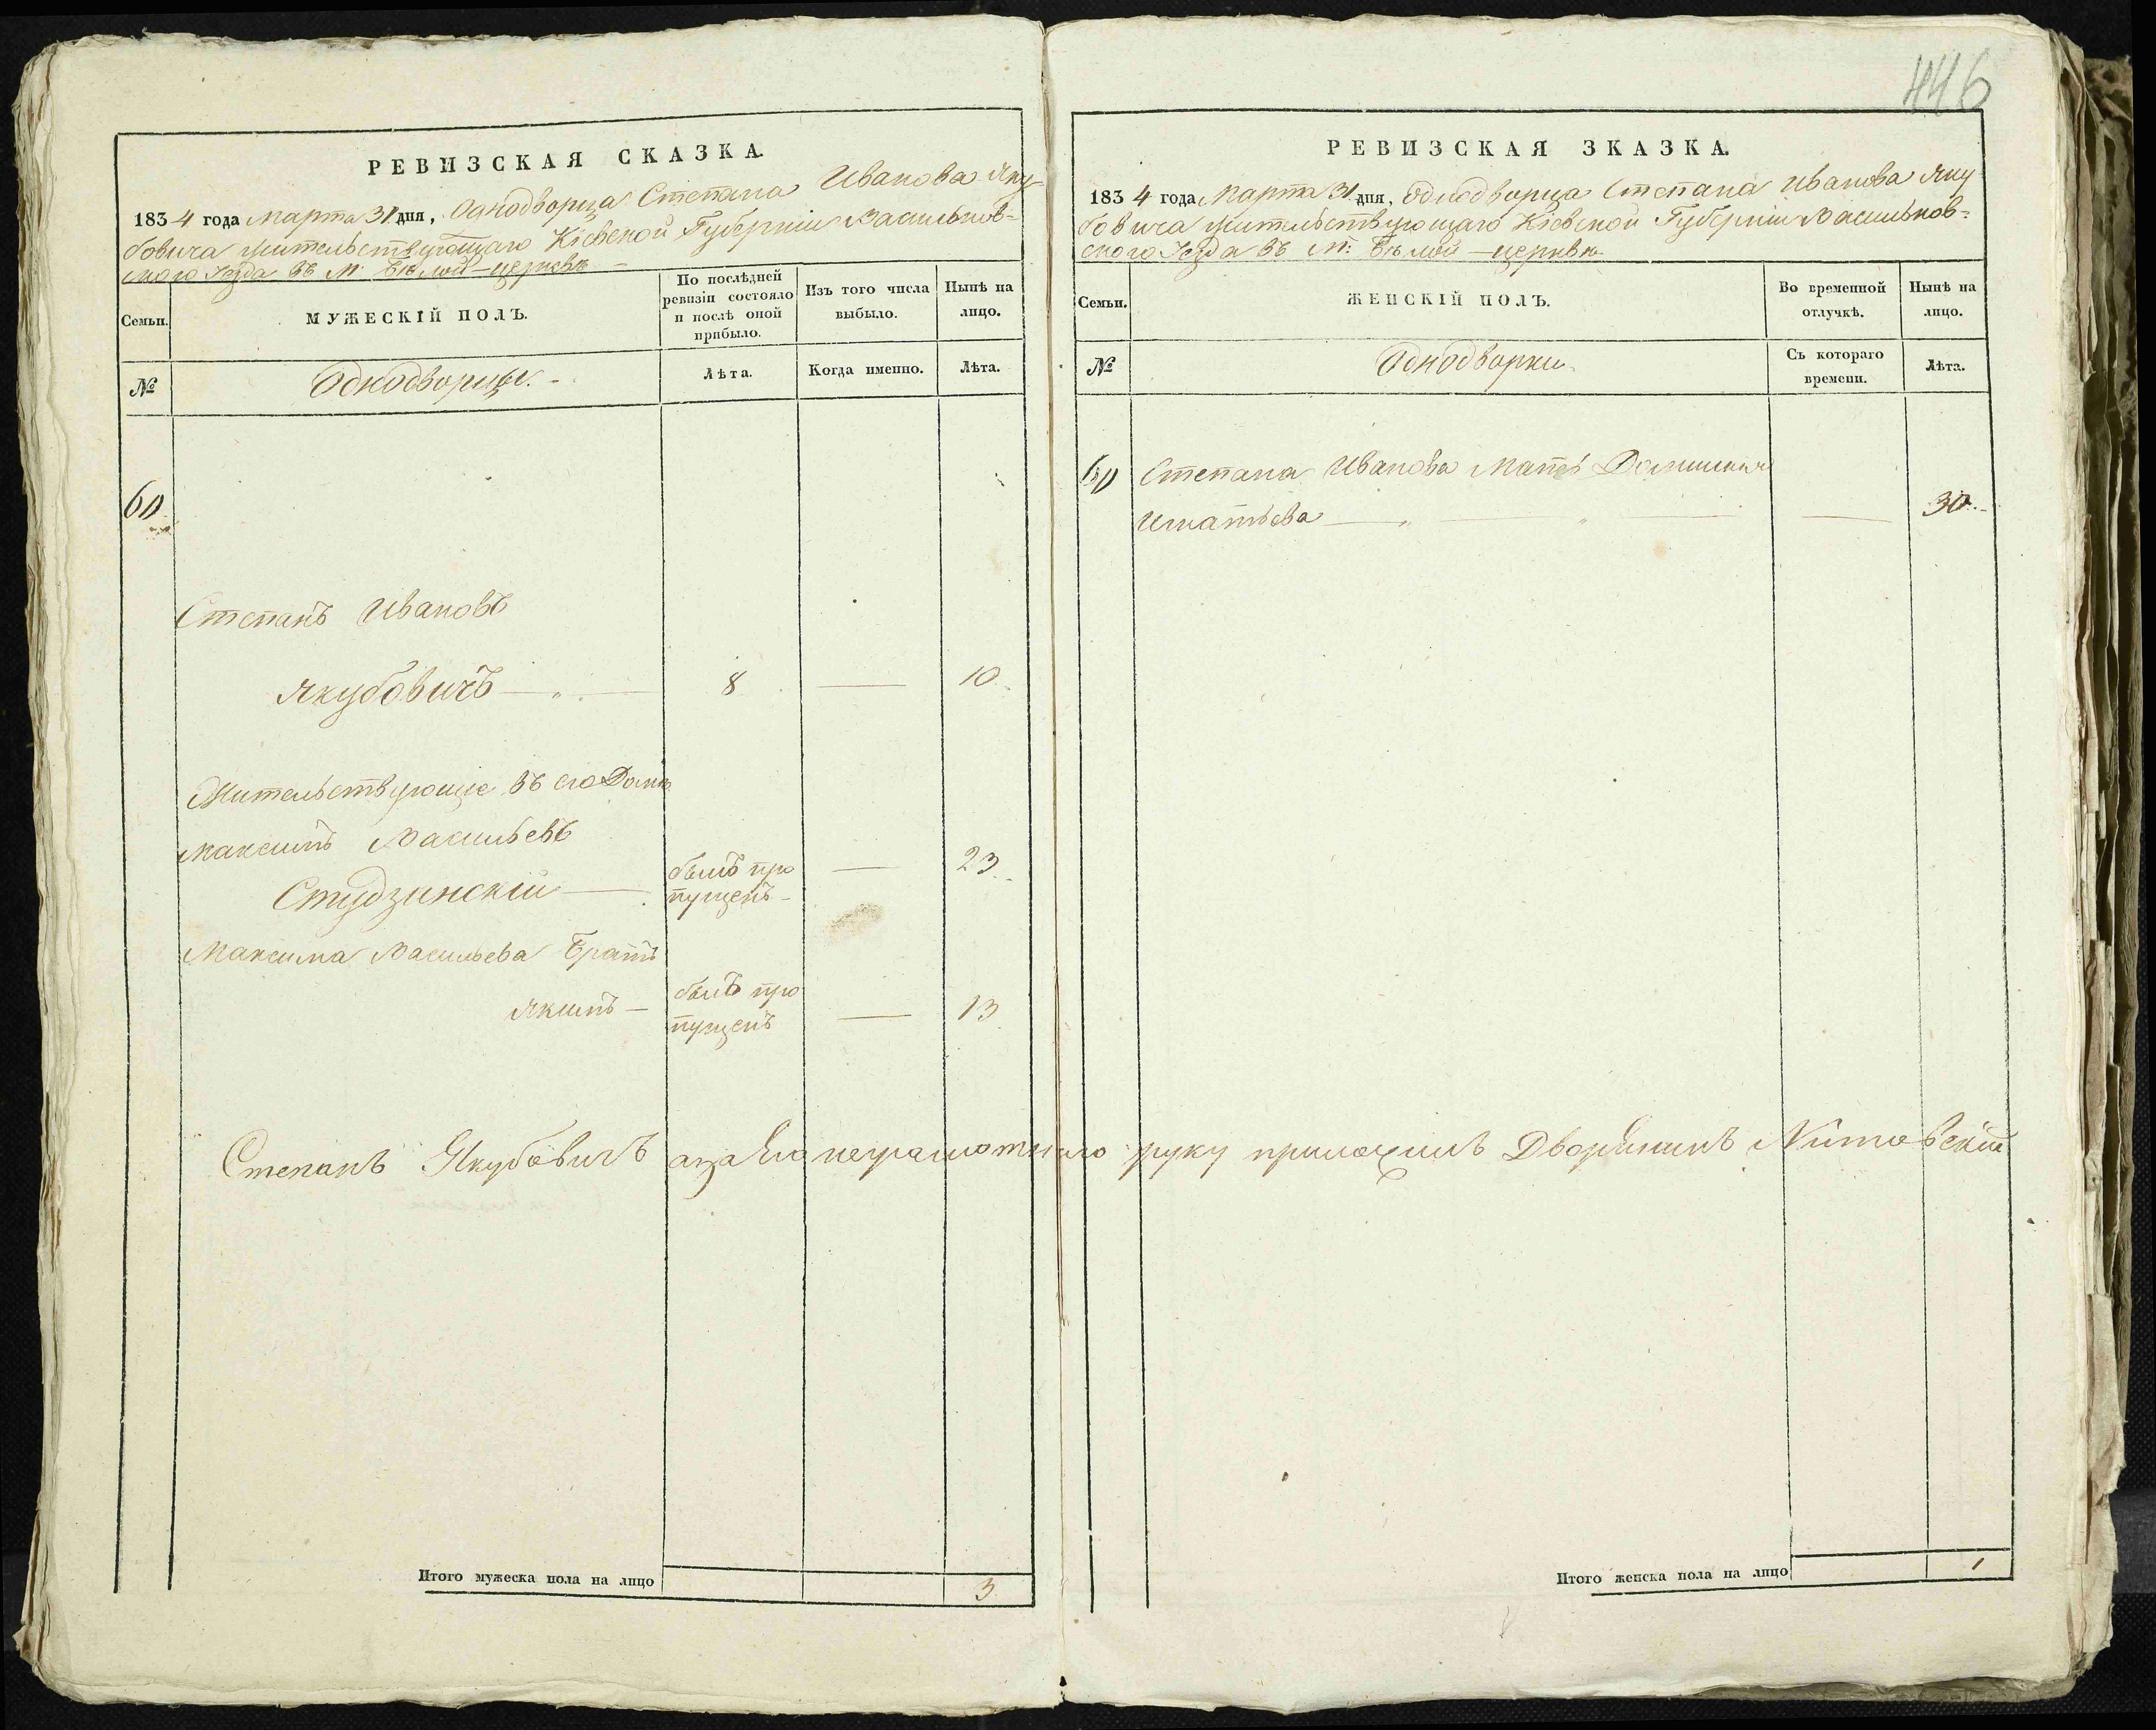 446
РЕВИЗСКАЯ СКАЗКА.
1834 года Марта 31 дня, Однодворца Степана Иванова Яку-
бовича жительствующаго Кіевской Губерніи Васильков-
скаго Уезда въ М: Бѣлой-церквѣ
Семьи.
МУЖЕСКІЙ ПОЛЪ.
По послѣдней
ревизіи состояло
и послѣ оной
прибыло.
Изъ того числа
выбыло.
Нынѣ на
лицо.
№
Однодворцы.
Лѣта.
Когда именно.
Лѣта.
60
Степанъ Ивановъ
Якубовичъ 8 — 10
Жительствующіе въ его Домѣ
Максимъ Васильевъ
Студзинскій былъ про — 23
пущенъ
Максима Васильева Братъ
Якимъ былъ про — 13
пущенъ
Итого мужеска пола на лицо 3
РЕВИЗСКАЯ ЗКАЗКА.
1834 года Марта 31 дня, Однодворца Степана Иванова Яку
бовича жительствующаго Кіевской Губерніи Васильков-
скаго Уезда въ М: Бѣлой-церквѣ
Семьи.
ЖЕНСКІЙ ПОЛЪ.
Во временной
отлучкѣ.
Нынѣ на
лицо.
№
Однодворки
Съ котораго
времени.
Лѣта.
60 Степана Иванова Мать
Игнатьева — 30
Степанъ Якубовичъ аза Его неграмотнаго руку приложилъ Дворянинъ
Итого женска пола на лицо 1